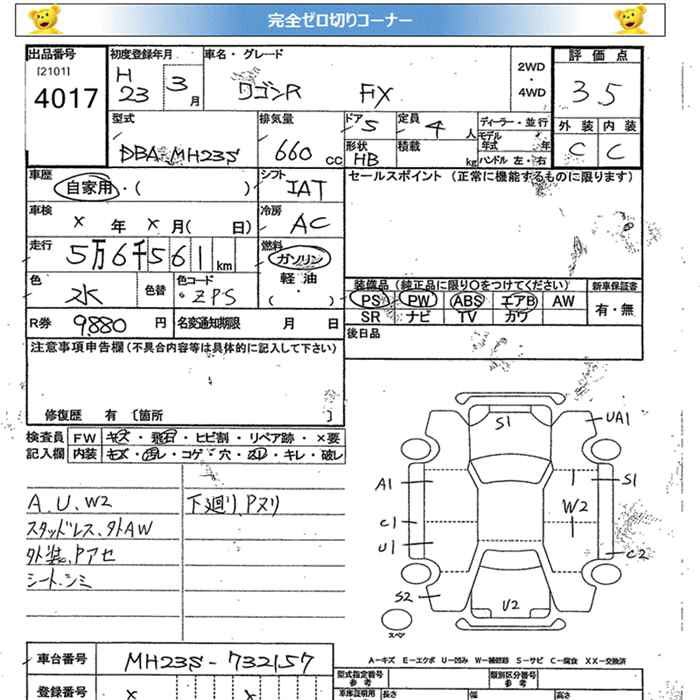 完全ゼロ切りコーナー
出品番号 初度登録年月 車名・グレード 評価点
[2101] H 23 3月 ワゴンR FX 2WD・4WD 3.5
4017
型式 排気量 ドア 5 定員 4人 ディーラー・並行 外装 内装
DBA-MH23S 660cc 形状 HB 積載 kg モデル年式 年 C C
ハンドル 左・右
車歴 自家用・( ) シフト IAT セールスポイント (正常に機能するものに限ります)
車検 X年X月( 日) 冷房 AC
走行 5万6千561km 燃料 ガソリン
軽油
( ・ )
色 水 色替 色コード ZPS 装備品 (純正品に限り〇をつけてください) 新車保証書
PS PW ABS エアB AW 有・無
R券 9880円 名変通知期限 月 日 SR ナビ TV カワ
後日品
注意事項申告欄(不具合内容等は具体的に記入して下さい)
修復歴 有 [箇所 ]
検査員 FW キズ・飛石・ヒビ割・リペア跡・×要
記入欄 内装 キズ・汚レ・コゲ・穴・スレ・キレ・破レ
A.U.W2 下廻り、Pヌリ
スタッドレス、外AW
外装、Pアセ
シート、シミ
S1 UA1
A1 S1
W2
C1
U1 C2
S2 U2
スペア
A-キズ E-エクボ U-凹み W-補修跡 S-サビ C-腐食 XX-交換済
車台番号 MH23S-732157 型式指定番号 参考 類別区分番号 参考
登録番号 X X 車庫証明用 参考 長さ 幅 高さ